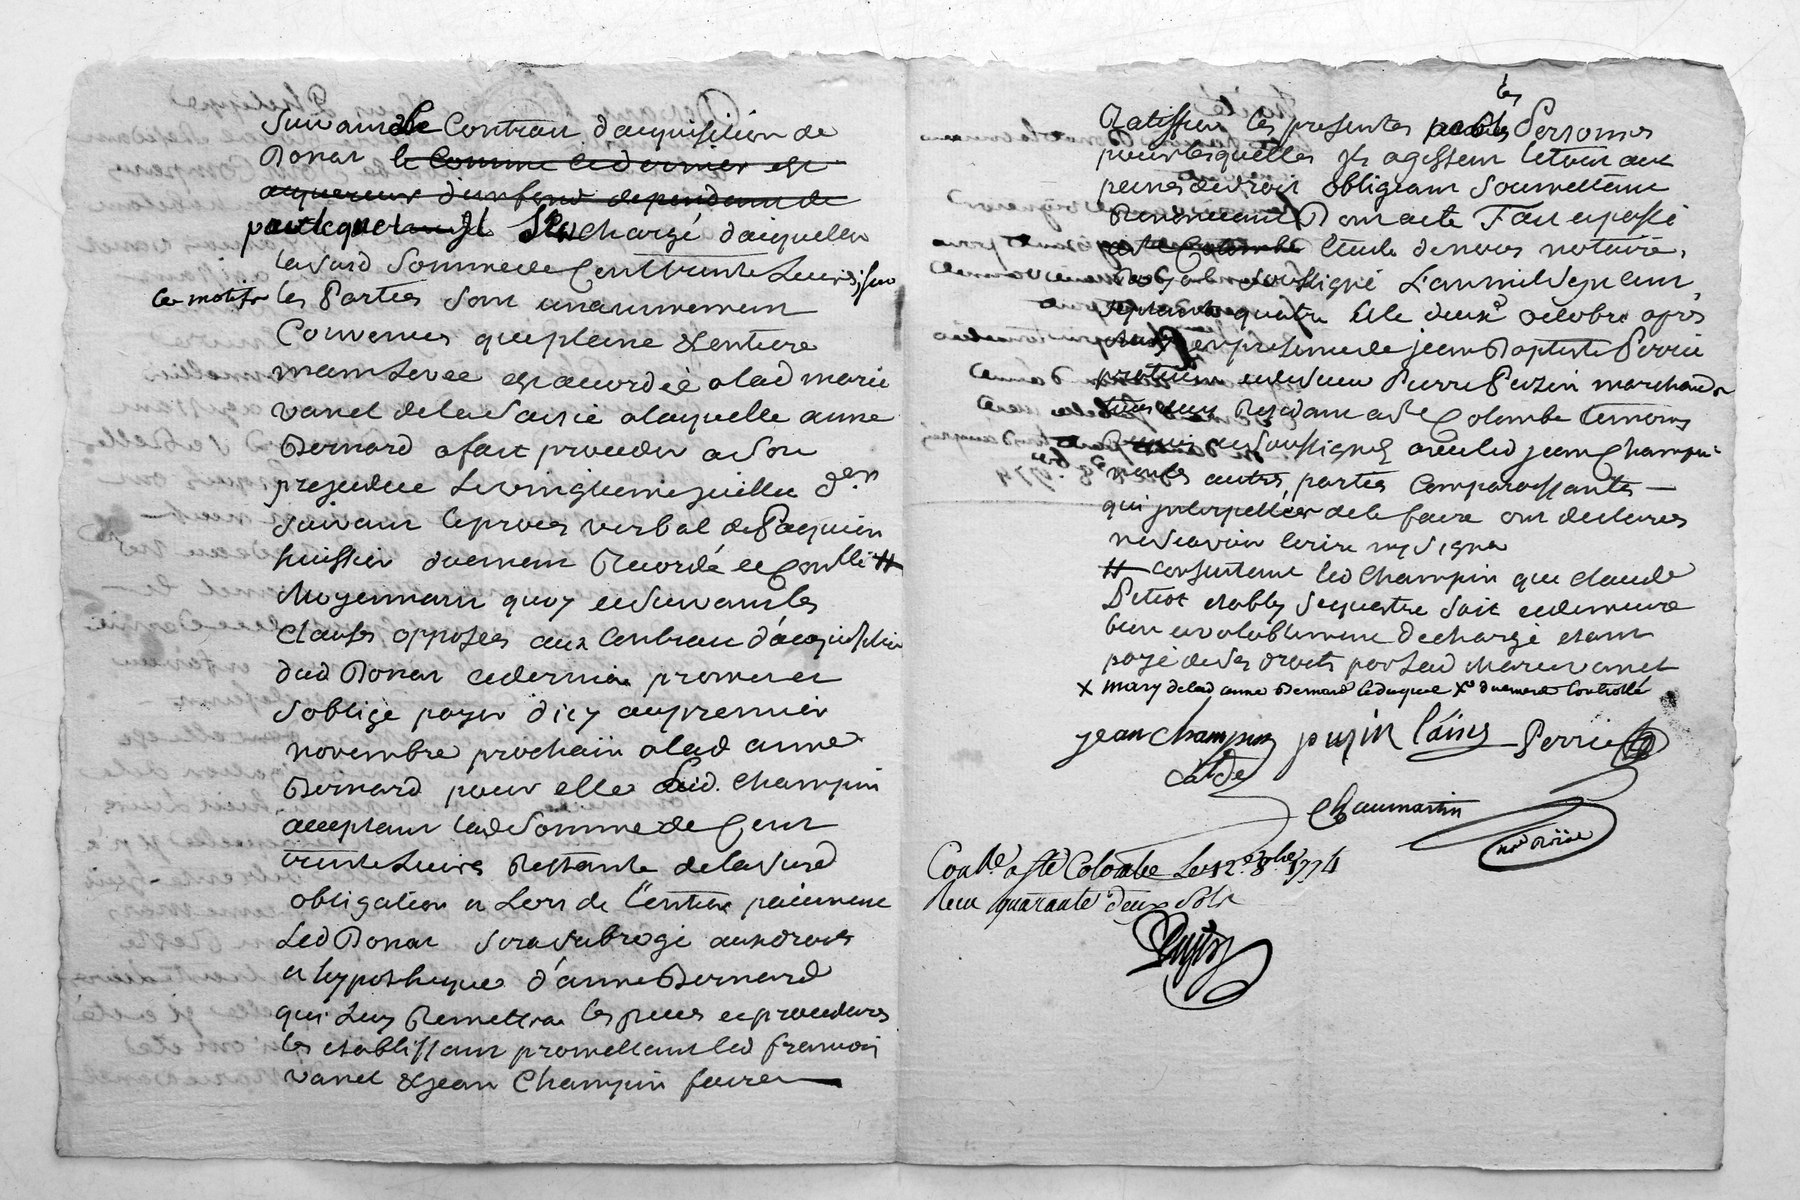 Suivant le Contrau d'acquisition de
Donat le Comme ce dernier est
acquereur d'un fond dependant de
par lequel il Est chargé d'acquitter
la susd Somme de Cent trente Livres, sur
ce motif les Parties sont unanimement
Convenues que pleine & entiere
main Levée est accordée a lad marie
vanel de la Saisie a laquelle anne
Bernard a fait proceder a Son
prejudice Le vingtieme juillet der
Suivant le proces verbal de Paquien
huissier duement Recordé et Conllé #
Moyennant quoy et Suivant les
Clauses opposées aux Contrau d'acquisition
dud Donat ce dernier promet et
s'oblige payer d'icy au premier
novembre prochain a lad anne
Bernard pour elle Led. Champin
acceptant lad Somme de Cent
trente Livres Restante de la susd
obligation et Lors de L'entier paiement
Led Donat sera subrogé aux droits
et hypotheque d'anne Bernard
qui Luy Remettra les pieces et procedures
les etablissant promettant led francois
vanel & jean Champin faire
les
Ratiffier les presentes par les Personnes
pour lesquelles ils agissent le tout aux
peines de droit obligeant Soumettant
Renonceant Dont acte Fait et passé
a Ste Colombe Etude de nous notaire
Royal Soussigné L'an mil Sept Cent
Septante quatre & le deuxe octobre apres
en presence de jean Baptiste Perrie
praticien et de sieur Pierre Puzin marchand
Residant a Ste Colombe temoins
Requis et Soussignés avec led jean Champin
non les autres parties Comparoissantes
qui interpellées de le faire ont declarés
ne Scavoir Ecrire ny Signer
# consentant led Champin que Claude
Petiot etably Sequestre Soit et demeure
bien et valablement dechargé etant
payé de Ses droits par Lad Marie vanel
x mary de lad anne Bernard x duement Controllé
jean Champin puzin Perrie
Chaumartin
nre Roial
Conlle a Ste Colombe Le 12e 8bre 1774
Recu quarante deux Sols
Puzin